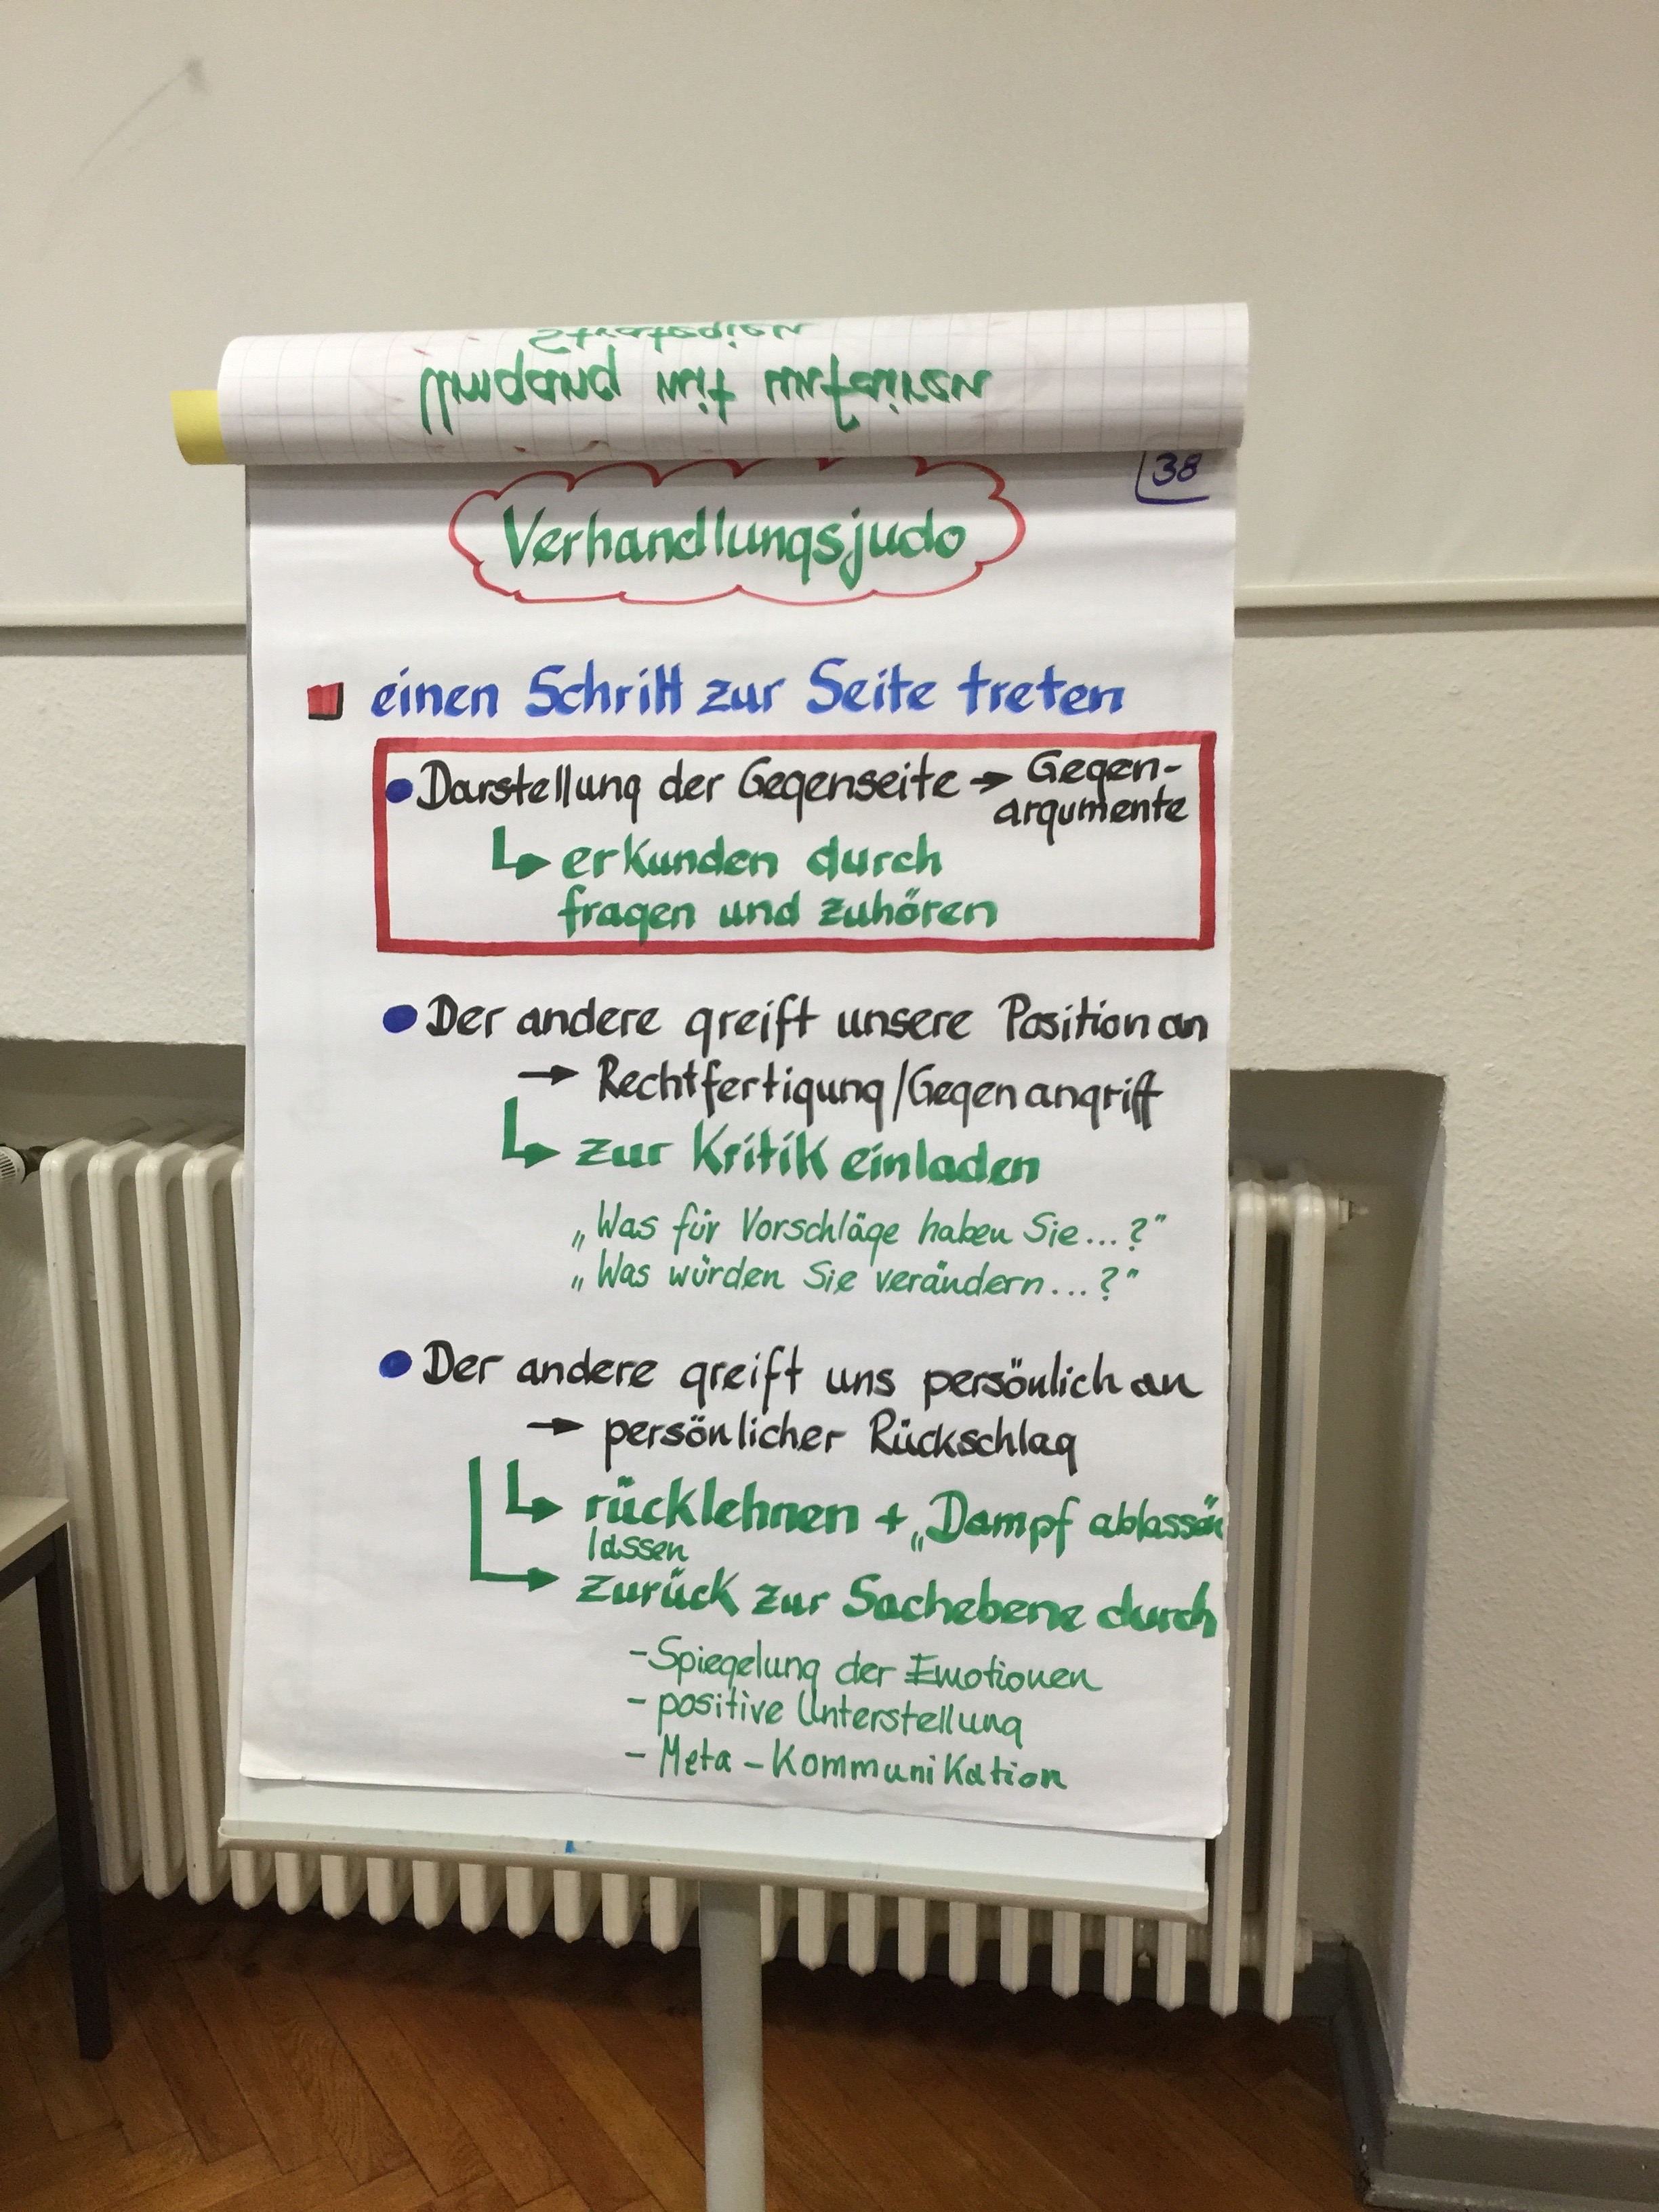 38
Verhandlungsjudo
einen Schritt zur Seite treten
Darstellung der Gegenseite → Gegen-
argumente
↳ erkunden durch
fragen und zuhören
Der andere greift unsere Position an
→ Rechtfertigung/Gegenangriff
↳ zur Kritik einladen
„Was für Vorschläge haben Sie...?"
„Was würden Sie verändern...?"
Der andere greift uns persönlich an
→ persönlicher Rückschlag
↳ rücklehnen + „Dampf ablassen"
lassen
↳ zurück zur Sachebene durch
- Spiegelung der Emotionen
- positive Unterstellung
- Meta-Kommunikation